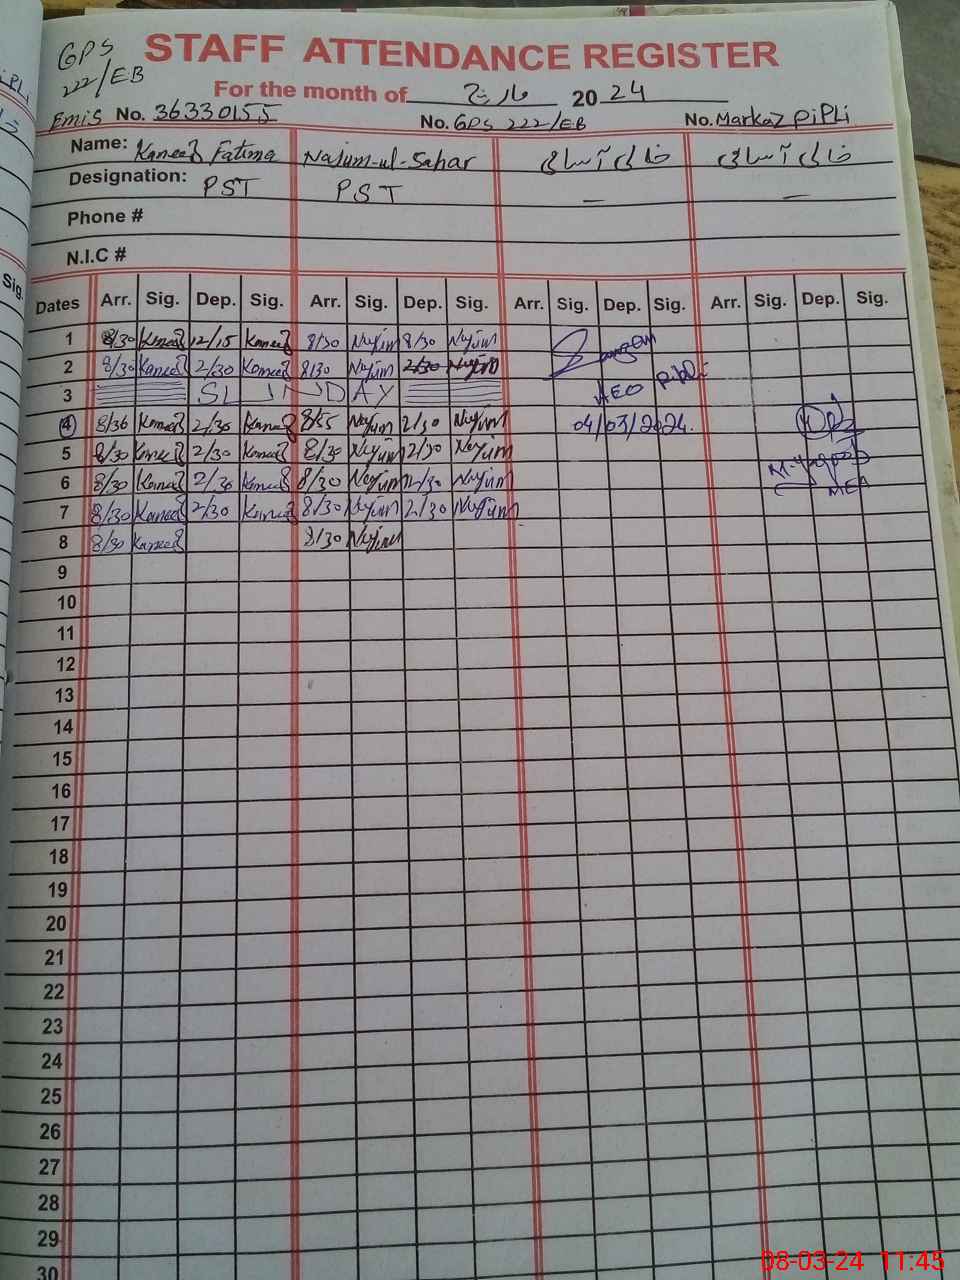 GPS
222/EB
STAFF ATTENDANCE REGISTER
For the month of مارچ 2024
Emis No. 36330155 No. GPS 222/EB No. Markaz PiPLi
Name: Kaneez Fatima Najum-ul-Sahar خالی آسامی خالی آسامی
Designation: PST PST — —
Phone #
N.I.C #
Dates Arr. Sig. Dep. Sig. Arr. Sig. Dep. Sig. Arr. Sig. Dep. Sig. Arr. Sig. Dep. Sig.
1 8/30 Kaneez 12/15 Kaneez 8/30 Najum 8/30 Najum
2 8/30 Kaneez 2/30 Kaneez 8/30 Najum 2/30 Najum
3 SUNDAY AEO Pipli
4 8/36 Kaneez 2/30 Kaneez 8/55 Najum 2/30 Najum 04/03/2024.
5 8/30 Kaneez 2/30 Kaneez 8/30 Najum 2/30 Najum
6 8/30 Kaneez 2/30 Kaneez 8/30 Najum 2/30 Najum MEA
7 8/30 Kaneez 2/30 Kaneez 8/30 Najum 2/30 Najum
8 8/30 Kaneez 8/30 Najum
9
10
11
12
13
14
15
16
17
18
19
20
21
22
23
24
25
26
27
28
29
30
08-03-24 11:45
Sig.